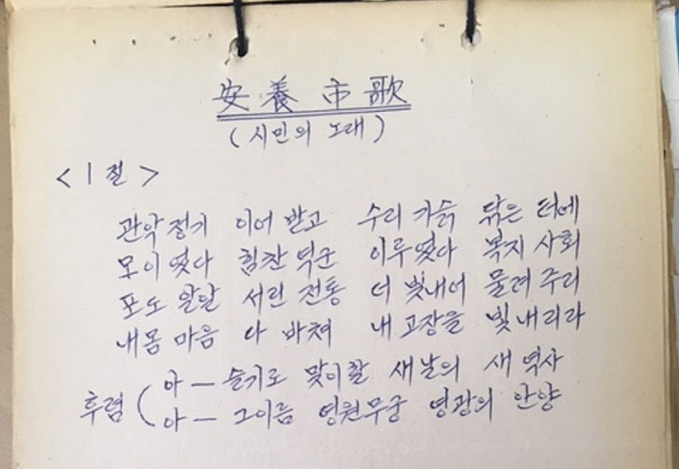 安養市歌
(시민의 노래)
<1절>
관악정기 이어 받고 수리 기슭 닦은 터에
모이였다 힘찬 역군 이루였다 복지 사회
포도알알 서린 전통 더 빛내어 물려주리
내몸 마음 다 바쳐 내 고장을 빛내리라
후렴 ( 아 - 슬기로 맞이할 새날의 새 역사
아 - 그이름 영원무궁 영광의 안양